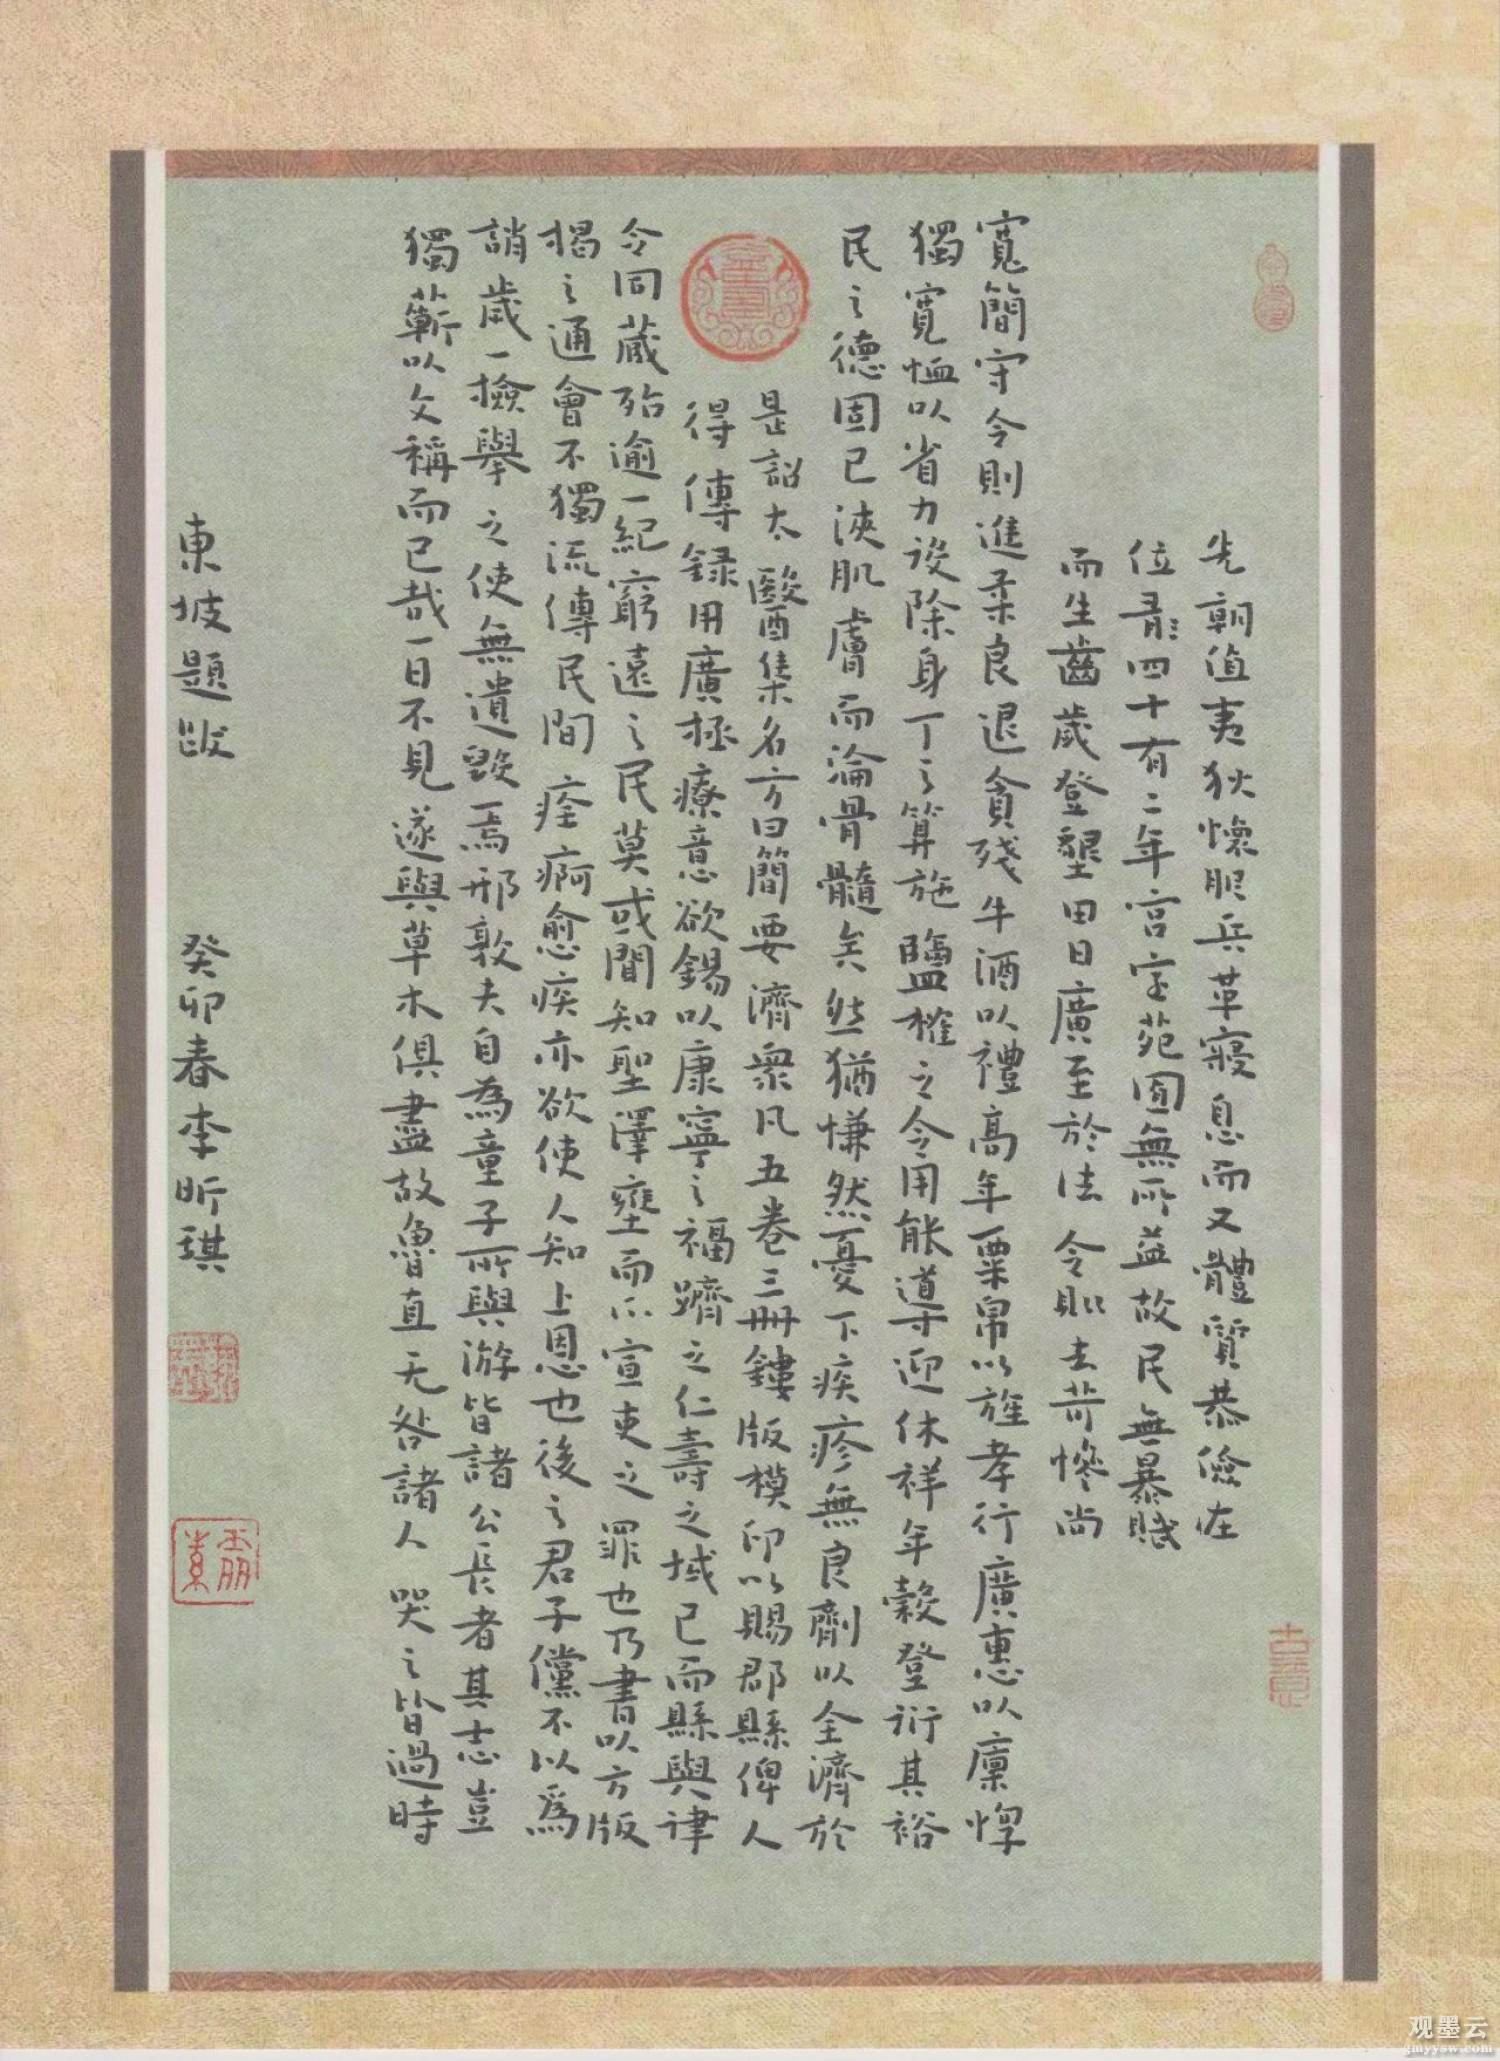 先朝值夷狄懷服兵革寢息而又體質恭儉在
位四十有二年宮室苑囿無所益故民無暴賦
而生齒歲登墾田日廣至於法令則去苛慘尚
寬簡守令則進柔良退貪殘牛酒以禮高年粟帛以旌孝行廣惠以廩惸
獨寬恤以省力役除身丁之算弛鹽榷之令用能導迎休祥年穀登衍其裕
民之德固已浹肌膚而淪骨髓矣然猶慊然憂下疾疹無良劑以全濟於
是詔太醫集名方曰簡要濟衆凡五卷三冊鏤版模印以賜郡縣俾人
得傳錄用廣拯療意欲錫以康寧之福躋之仁壽之域已而縣與律
令同藏殆逾一紀窮遠之民莫或聞知聖澤壅而不宣吏之罪也乃書以方版
揭之通會不獨流傳民間痊痾愈疾亦欲使人知上恩也後之君子儻不以爲
誚歲一檢舉之使無遺毀焉邢敦夫自為童子所與游皆諸公長者其志豈
獨蘄以文稱而已哉一日不見遂與草木俱盡故魯直无咎諸人哭之皆過時
東坡題跋 癸卯春李昕琪
观墨云
gmyysw.com